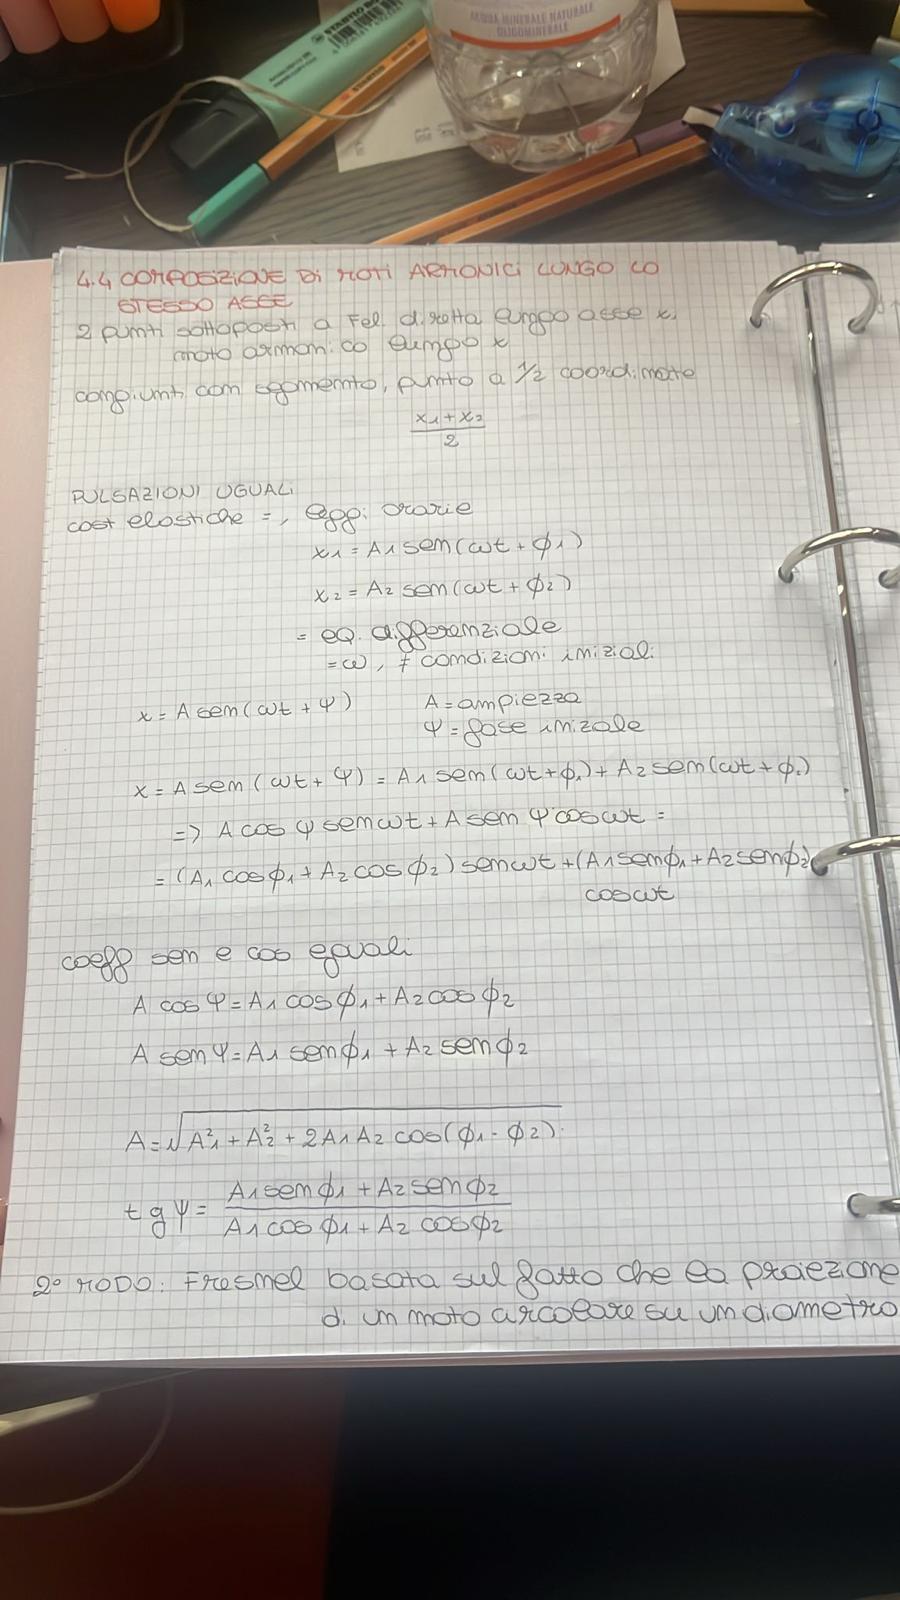 STABILO BO
ACQUA MINERALE NATURALE
OLIGOMINERALE
4.4 COMPOSIZIONE DI MOTI ARMONICI LUNGO LO
STESSO ASSE
2 punti sottoposti a Fel. diretta lungo asse x,
moto armonico lungo x
congiunti con segmento, punto a 1/2 coordinate
x₁+x₂
2
PULSAZIONI UGUALI
cost elastiche =, leggi orarie
x₁ = A₁ sen(ωt + ϕ₁)
x₂ = A₂ sen(ωt + ϕ₂)
= eq. differenziale
= ω, ≠ condizioni iniziali
x = A sen(ωt + ψ) A = ampiezza
ψ = fase inizale
x = A sen(ωt + ψ) = A₁ sen(ωt + ϕ₁) + A₂ sen(ωt + ϕ₂)
=> A cos ψ sen ωt + A sen ψ cos ωt =
= (A₁ cos ϕ₁ + A₂ cos ϕ₂) sen ωt + (A₁ sen ϕ₁ + A₂ sen ϕ₂)
cos ωt
coeff sen e cos eguali
A cos ψ = A₁ cos ϕ₁ + A₂ cos ϕ₂
A sen ψ = A₁ sen ϕ₁ + A₂ sen ϕ₂
A = √A₁² + A₂² + 2A₁A₂ cos(ϕ₁ - ϕ₂)
tg ψ = A₁ sen ϕ₁ + A₂ sen ϕ₂
A₁ cos ϕ₁ + A₂ cos ϕ₂
2° MODO: Fresnel basata sul fatto che la proiezione
di un moto arcolare su un diametro